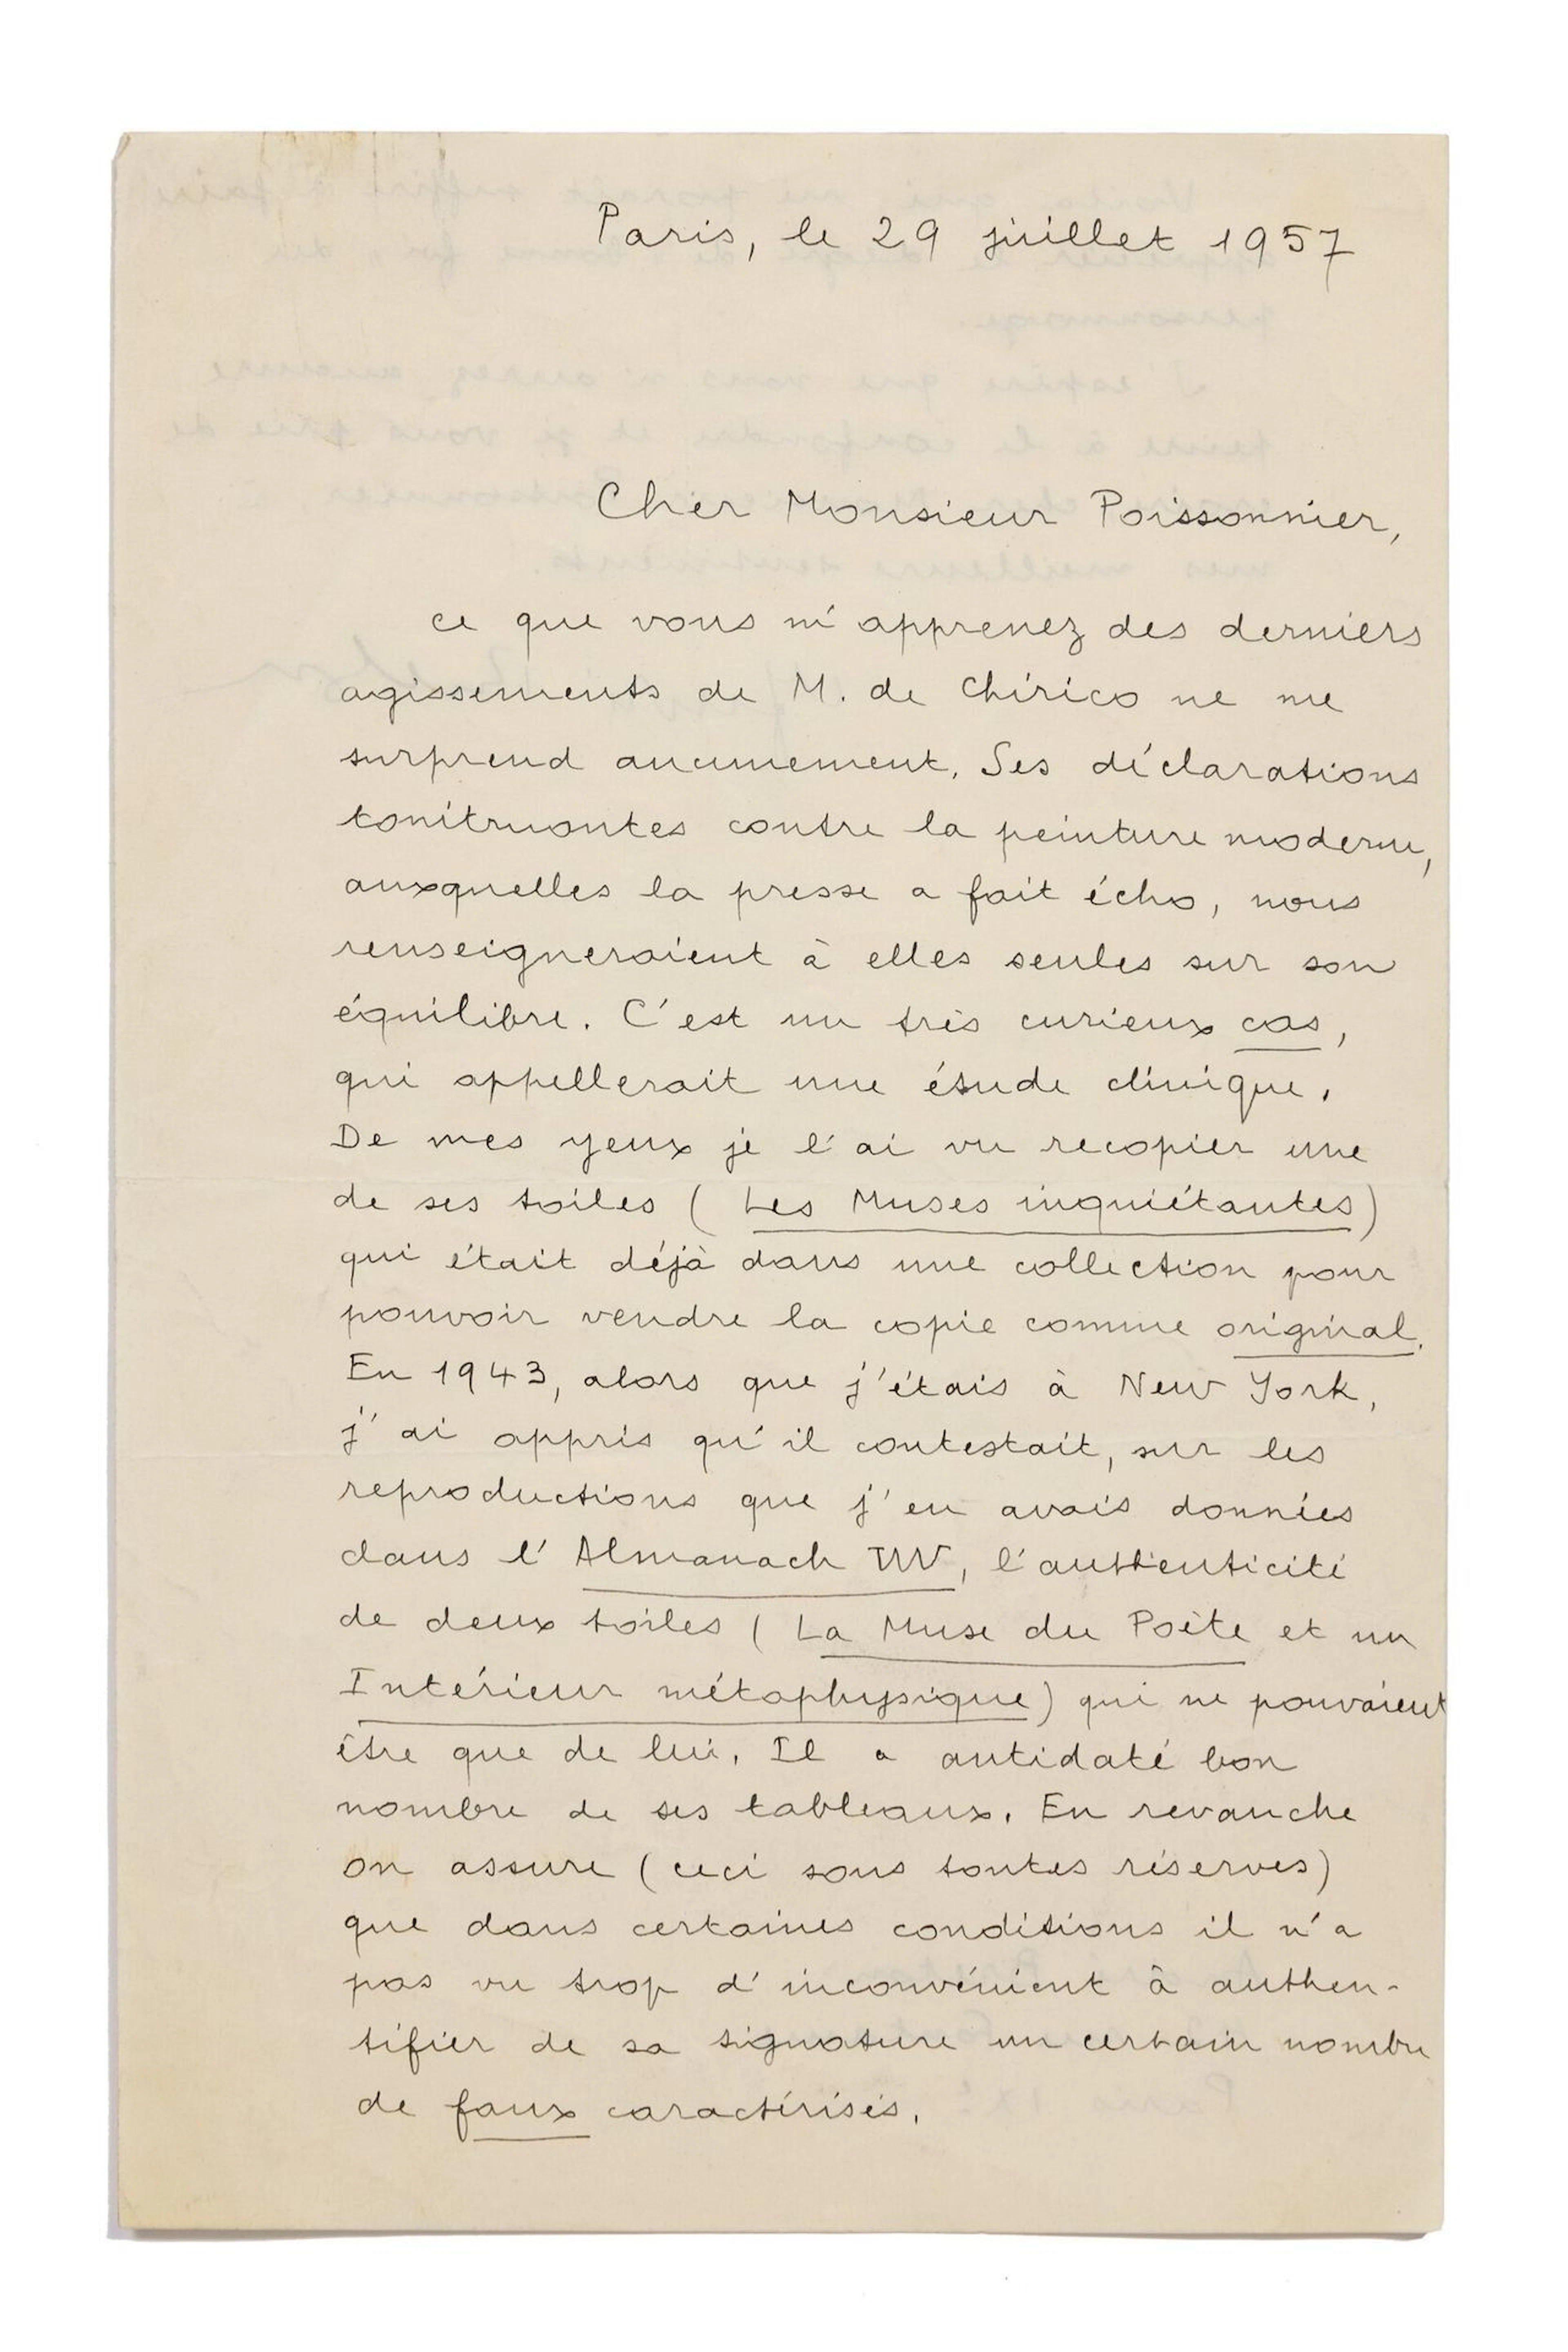 Paris, le 29 juillet 1957
Cher Monsieur Poissonnier,
ce que vous m'apprenez des derniers
agissements de M. de Chirico ne me
surprend aucunement. Ses déclarations
tonitruantes contre la peinture moderne,
auxquelles la presse a fait écho, nous
renseigneraient à elles seules sur son
équilibre. C'est un très curieux cas,
qui appellerait une étude clinique.
De mes yeux je l'ai vu recopier une
de ses toiles (Les Muses inquiétantes)
qui était déjà dans une collection pour
pouvoir vendre la copie comme original.
En 1943, alors que j'étais à New York,
j'ai appris qu'il contestait, sur les
reproductions que j'en avais données
dans l'Almanach VVV, l'authenticité
de deux toiles (La Muse du Poète et un
Intérieur métaphysique) qui ne pouvaient
être que de lui. Il a antidaté bon
nombre de ses tableaux. En revanche
on assure (ceci sous toutes réserves)
que dans certaines conditions il n'a
pas vu trop d'inconvénient à authen-
tifier de sa signature un certain nombre
de faux caractérisés.